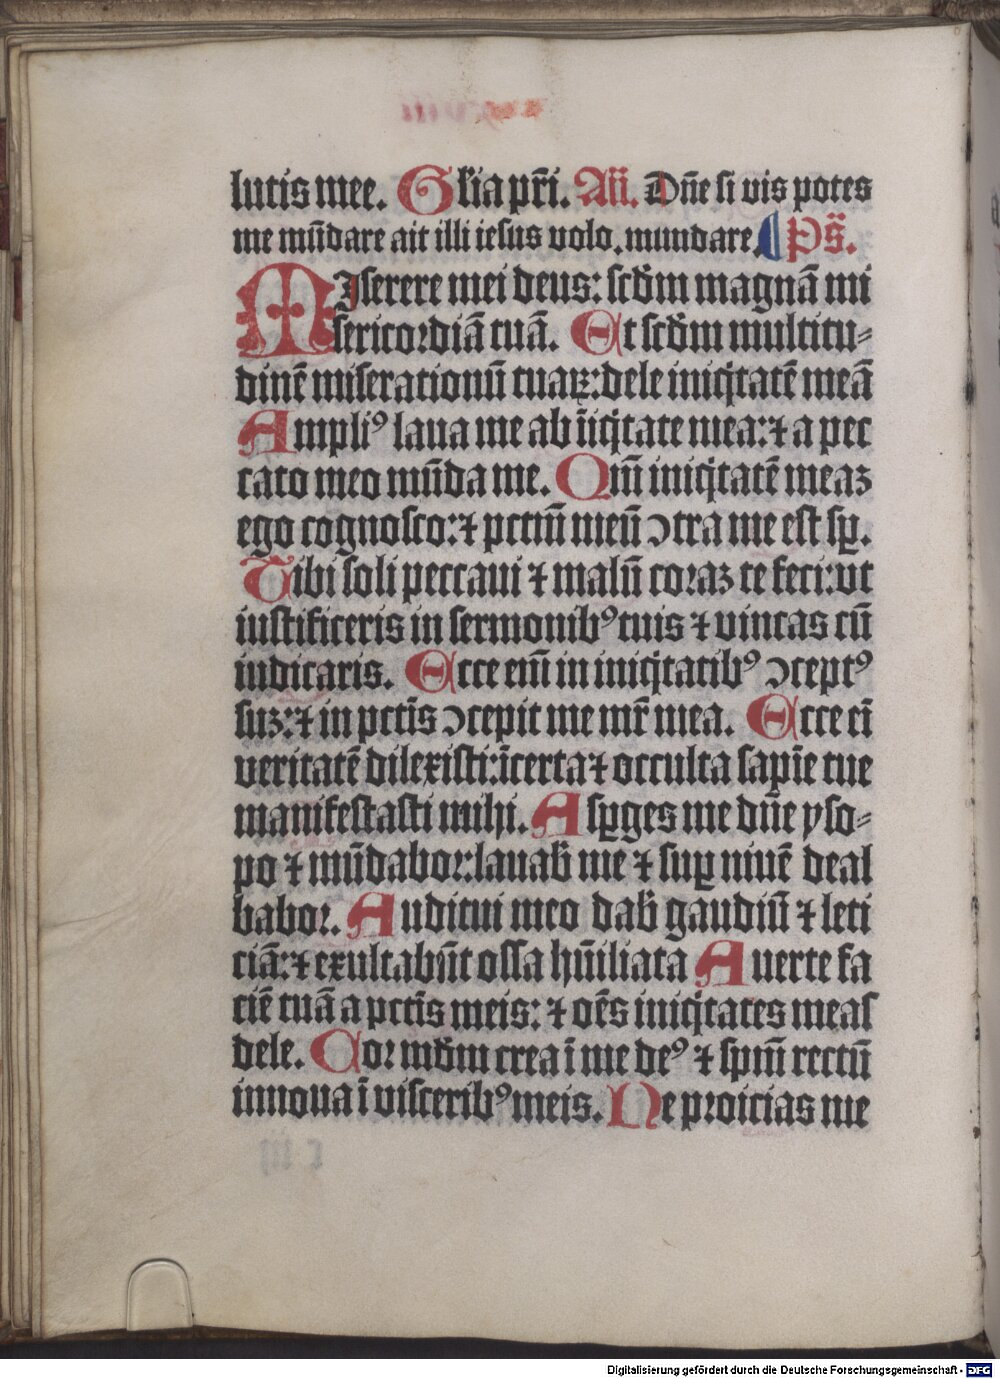 lutis mee. Gl'ia pr̄i. Añ. Dn̄e si vis potes
me mūdare ait illi iesus volo. mundare. Ps̄.
MIserere mei deus: scd̄m magnā mi
sericordiā tuā. Et scd̄m multitu⸗
dinē miserationū tuaꝝ: dele iniq̇tatē meā
Ampliꝰ laua me ab īiq̇tate mea: ⁊ a pec
cato meo mūda me. Qm̄ iniq̇tatē meaꝫ
ego cognosco: ⁊ pctm̄ meū ↄtra me est sꝑ.
Tibi soli peccaui ⁊ malū coraꝫ te feci: vt
iustificeris in sermonibꝰ tuis ⁊ vincas cū
iudicaris. Ecce em̄ in iniq̇tatibꝰ ↄceptꝰ
suꝫ: ⁊ in pctīs ↄcepit me mr̄ mea. Ecce ei̅
veritatē dilexisti: īcerta ⁊ occulta sapīe tue
manifestasti mihi. Asꝑges me dn̄e yso⸗
po ⁊ mūdabor: lauab̄ me ⁊ suꝑ niuē deal
babor. Auditui meo dab̄ gaudiū ⁊ leti
ciā: ⁊ exultabūt ossa hūiliata Auerte fa
ciē tuā a pctīs meis: ⁊ oēs iniq̇tates meas
dele. Cor mūdm crea ī me deꝰ ⁊ spm̄ rectū
innoua ī visceribꝰ meis. Ne proicias me
Digitalisierung gefördert durch die Deutsche Forschungsgemeinschaft - DFG